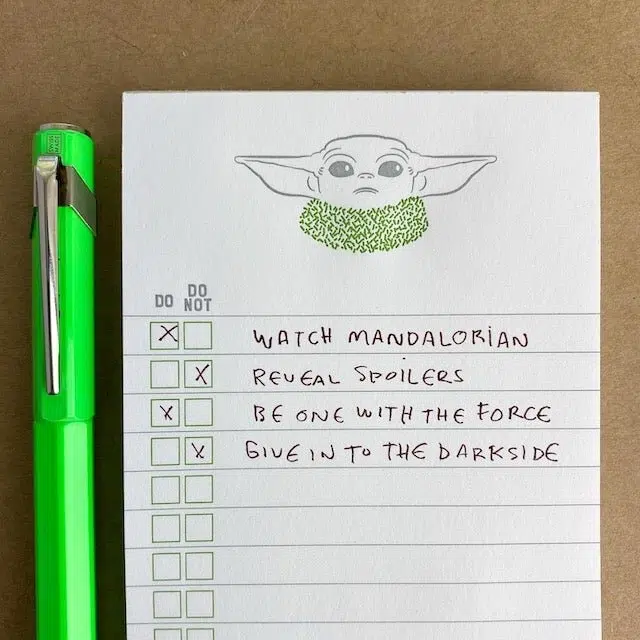 DO DO NOT
X WATCH MANDALORIAN
X REVEAL SPOILERS
X BE ONE WITH THE FORCE
X GIVE IN TO THE DARKSIDE